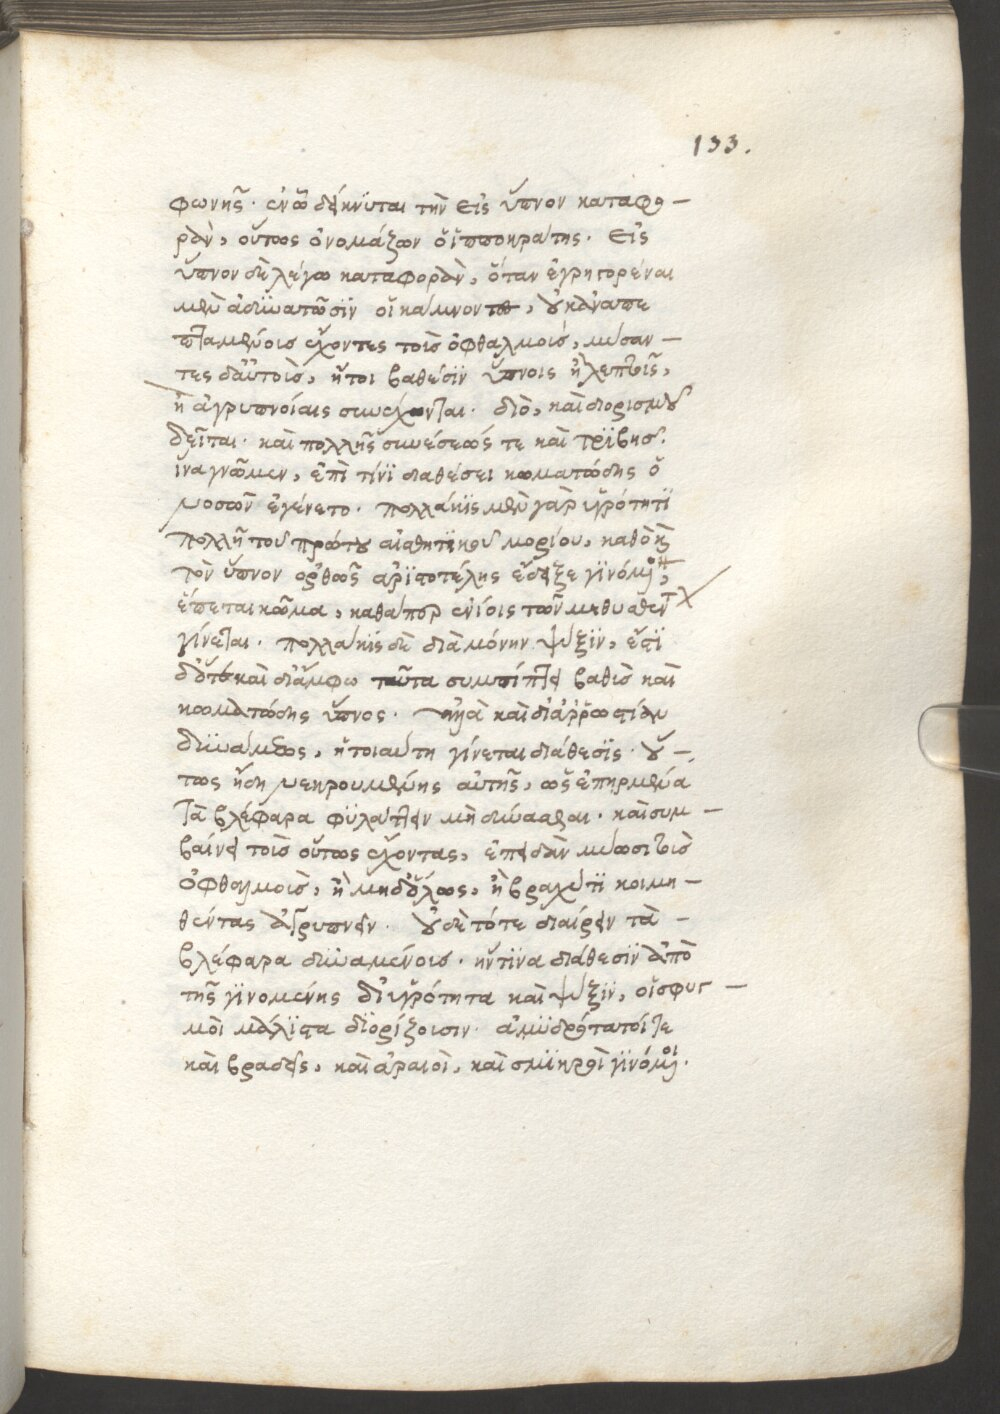 133.
φωνῆς. ἐν ᾧ δείκνυται τὴν εἰς ὕπνον καταφο –
ρὰν, οὕτως ὀνομάζων ὁ ἱπποκράτης. Εἰς
ὕπνον δὲ λέγω καταφορὰν, ὅταν ἐγρηγορέναι
μὲν ἀδυνατῶσιν οἱ κάμνοντες, οὐκ ἀναπε
πταμένοις ἔχοντες τοῖς ὀφθαλμοῖς, μύσαν –
τες δ' αὐτοῖς, ἤτοι βαθέσιν ὕπνοις ἢ λεπτοῖς,
ἢ ἀγρυπνίαις συνέχονται. διὸ, καὶ διορισμοῦ
δεῖται. καὶ πολλῆς συνέσεώς τε καὶ τριβῆς.
ἵνα γνῶμεν, ἐπὶ τίνι διαθέσει κωματώδης ὁ
νοσῶν ἐγένετο. πολλάκις μὲν γὰρ ὑγρότητι
πολλῇ τοῦ πρώτου αἰσθητικοῦ μορίου, καθὸ κ̀
τὸν ὕπνον ὀρθῶς ἀριστοτέλης ἔδειξε γινόμον,
ἕπεται κῶμα, καθάπερ ἐνίοις τῶν μεθυσθέντ
γίνεται. πολλάκις δὲ διὰ μόνην ψύξιν, ἔστι
δ' ὅτε καὶ δι' ἄμφω ταῦτα συμπίπτει βαθὺς καὶ
κωματώδης ὕπνος. καὶ δι' ἀρρωστίαν
δυνάμεως, ἡ τοιαύτη γίνεται διάθεσις. οὕ –
τως ἤδη νεκρουμένης αὐτῆς, ὡς ἐπηρμένα
τὰ βλέφαρα φυλάττειν μὴ δύνασθαι. καὶ συμ –
βαίνει τοῖς οὕτως ἔχοντας, ἐπειδὰν μύωσι τοῖς
ὀφθαλμοῖς, ἢ μηδ' ὅλως, ἢ βραχύ τι κοιμη –
θέντας ἀγρυπνεῖν. οὐδὲ τότε διαίρειν τὰ –
βλέφαρα δυναμένοις. ἥντινα διάθεσιν ἀπὸ
τῆς γινομένης δι' ὑγρότητα καὶ ψύξιν, οἱ σφυγ –
μοὶ μάλιστα διορίζουσιν. ἀμυδρότατοί τε
καὶ βραδεῖς, καὶ ἀραιοὶ, καὶ σμικροὶ γινόμοι.